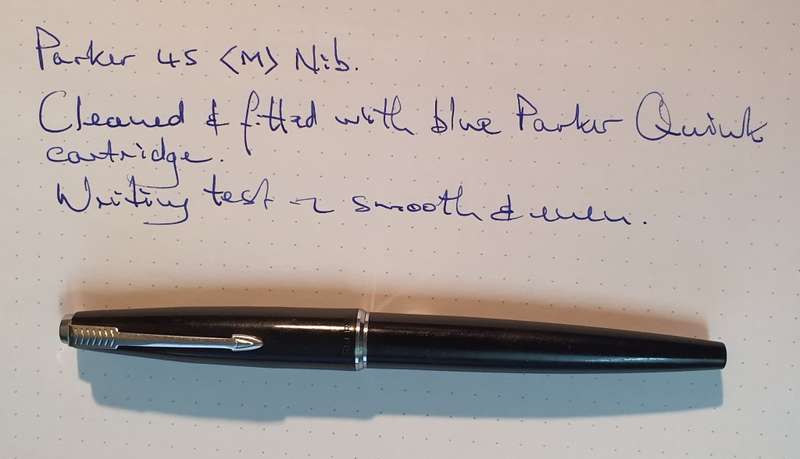 Parker 45 <M> Nib.
Cleaned & fitted with blue Parker Quink
cartridge.
Writing test ~ smooth & even.